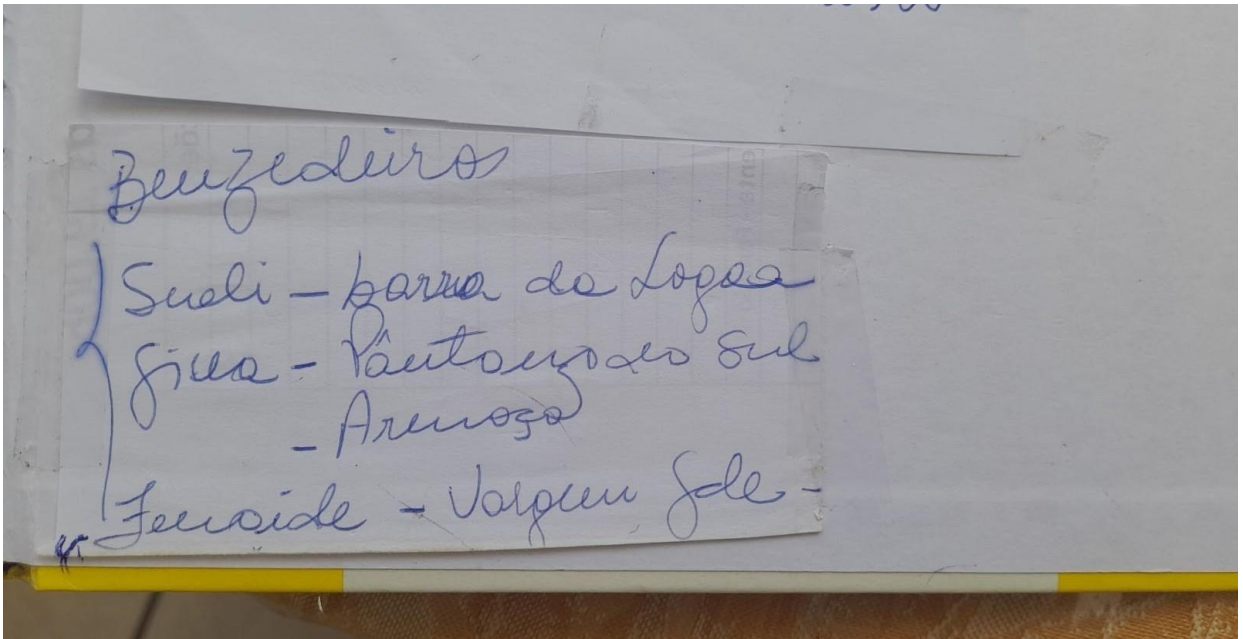 Benzedeiros
Sueli - barra da Lagoa
Gica - Pântano do Sul
- Armação
Zenaide - Vargem Gde -